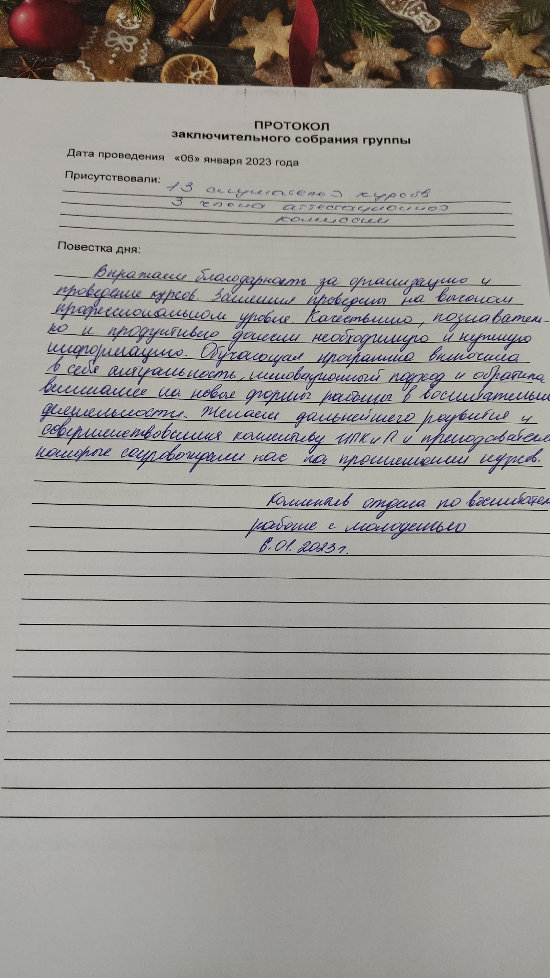 ПРОТОКОЛ
заключительного собрания группы
Дата проведения «06» января 2023 года
Присутствовали: 13 слушателей курсов
3 члена аттестационной
комиссии
Повестка дня:
Выражаем благодарность за организацию и
проведение курсов. Занятия проведены на высоком
профессиональном уровне. Качественно, познаватель-
но и продуктивно донесли необходимую и нужную
информацию. Обучающая программа включила
в себя актуальность, инновационный подход и обратила
внимание на новые формы работы в воспитательн
деятельности. Желаем дальнейшего развития и
совершенствования коллективу ИПКиП и преподавателя
которые сопровождали нас на протяжении курсов.
Коллектив отдела по воспитател
работе с молодежью
6.01.2023 г.